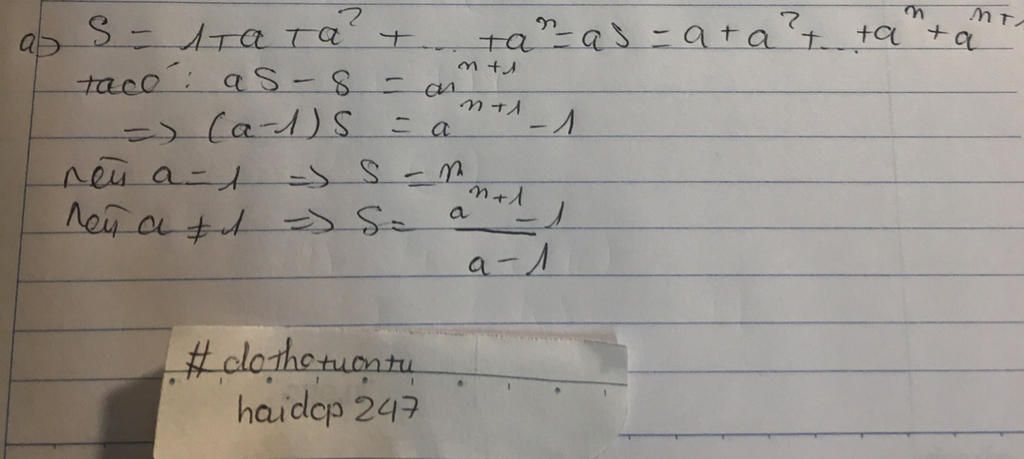 a) S = 1+a+a² + ... +aⁿ = aS = a+a²+...+aⁿ+aⁿ⁺¹
ta có: aS - S = aⁿ⁺¹
=> (a-1)S = aⁿ⁺¹ - 1
nếu a=1 => S = n
nếu a ≠ 1 => S = (aⁿ⁺¹ - 1)/(a - 1)
#dothotuontu
haidcp 247